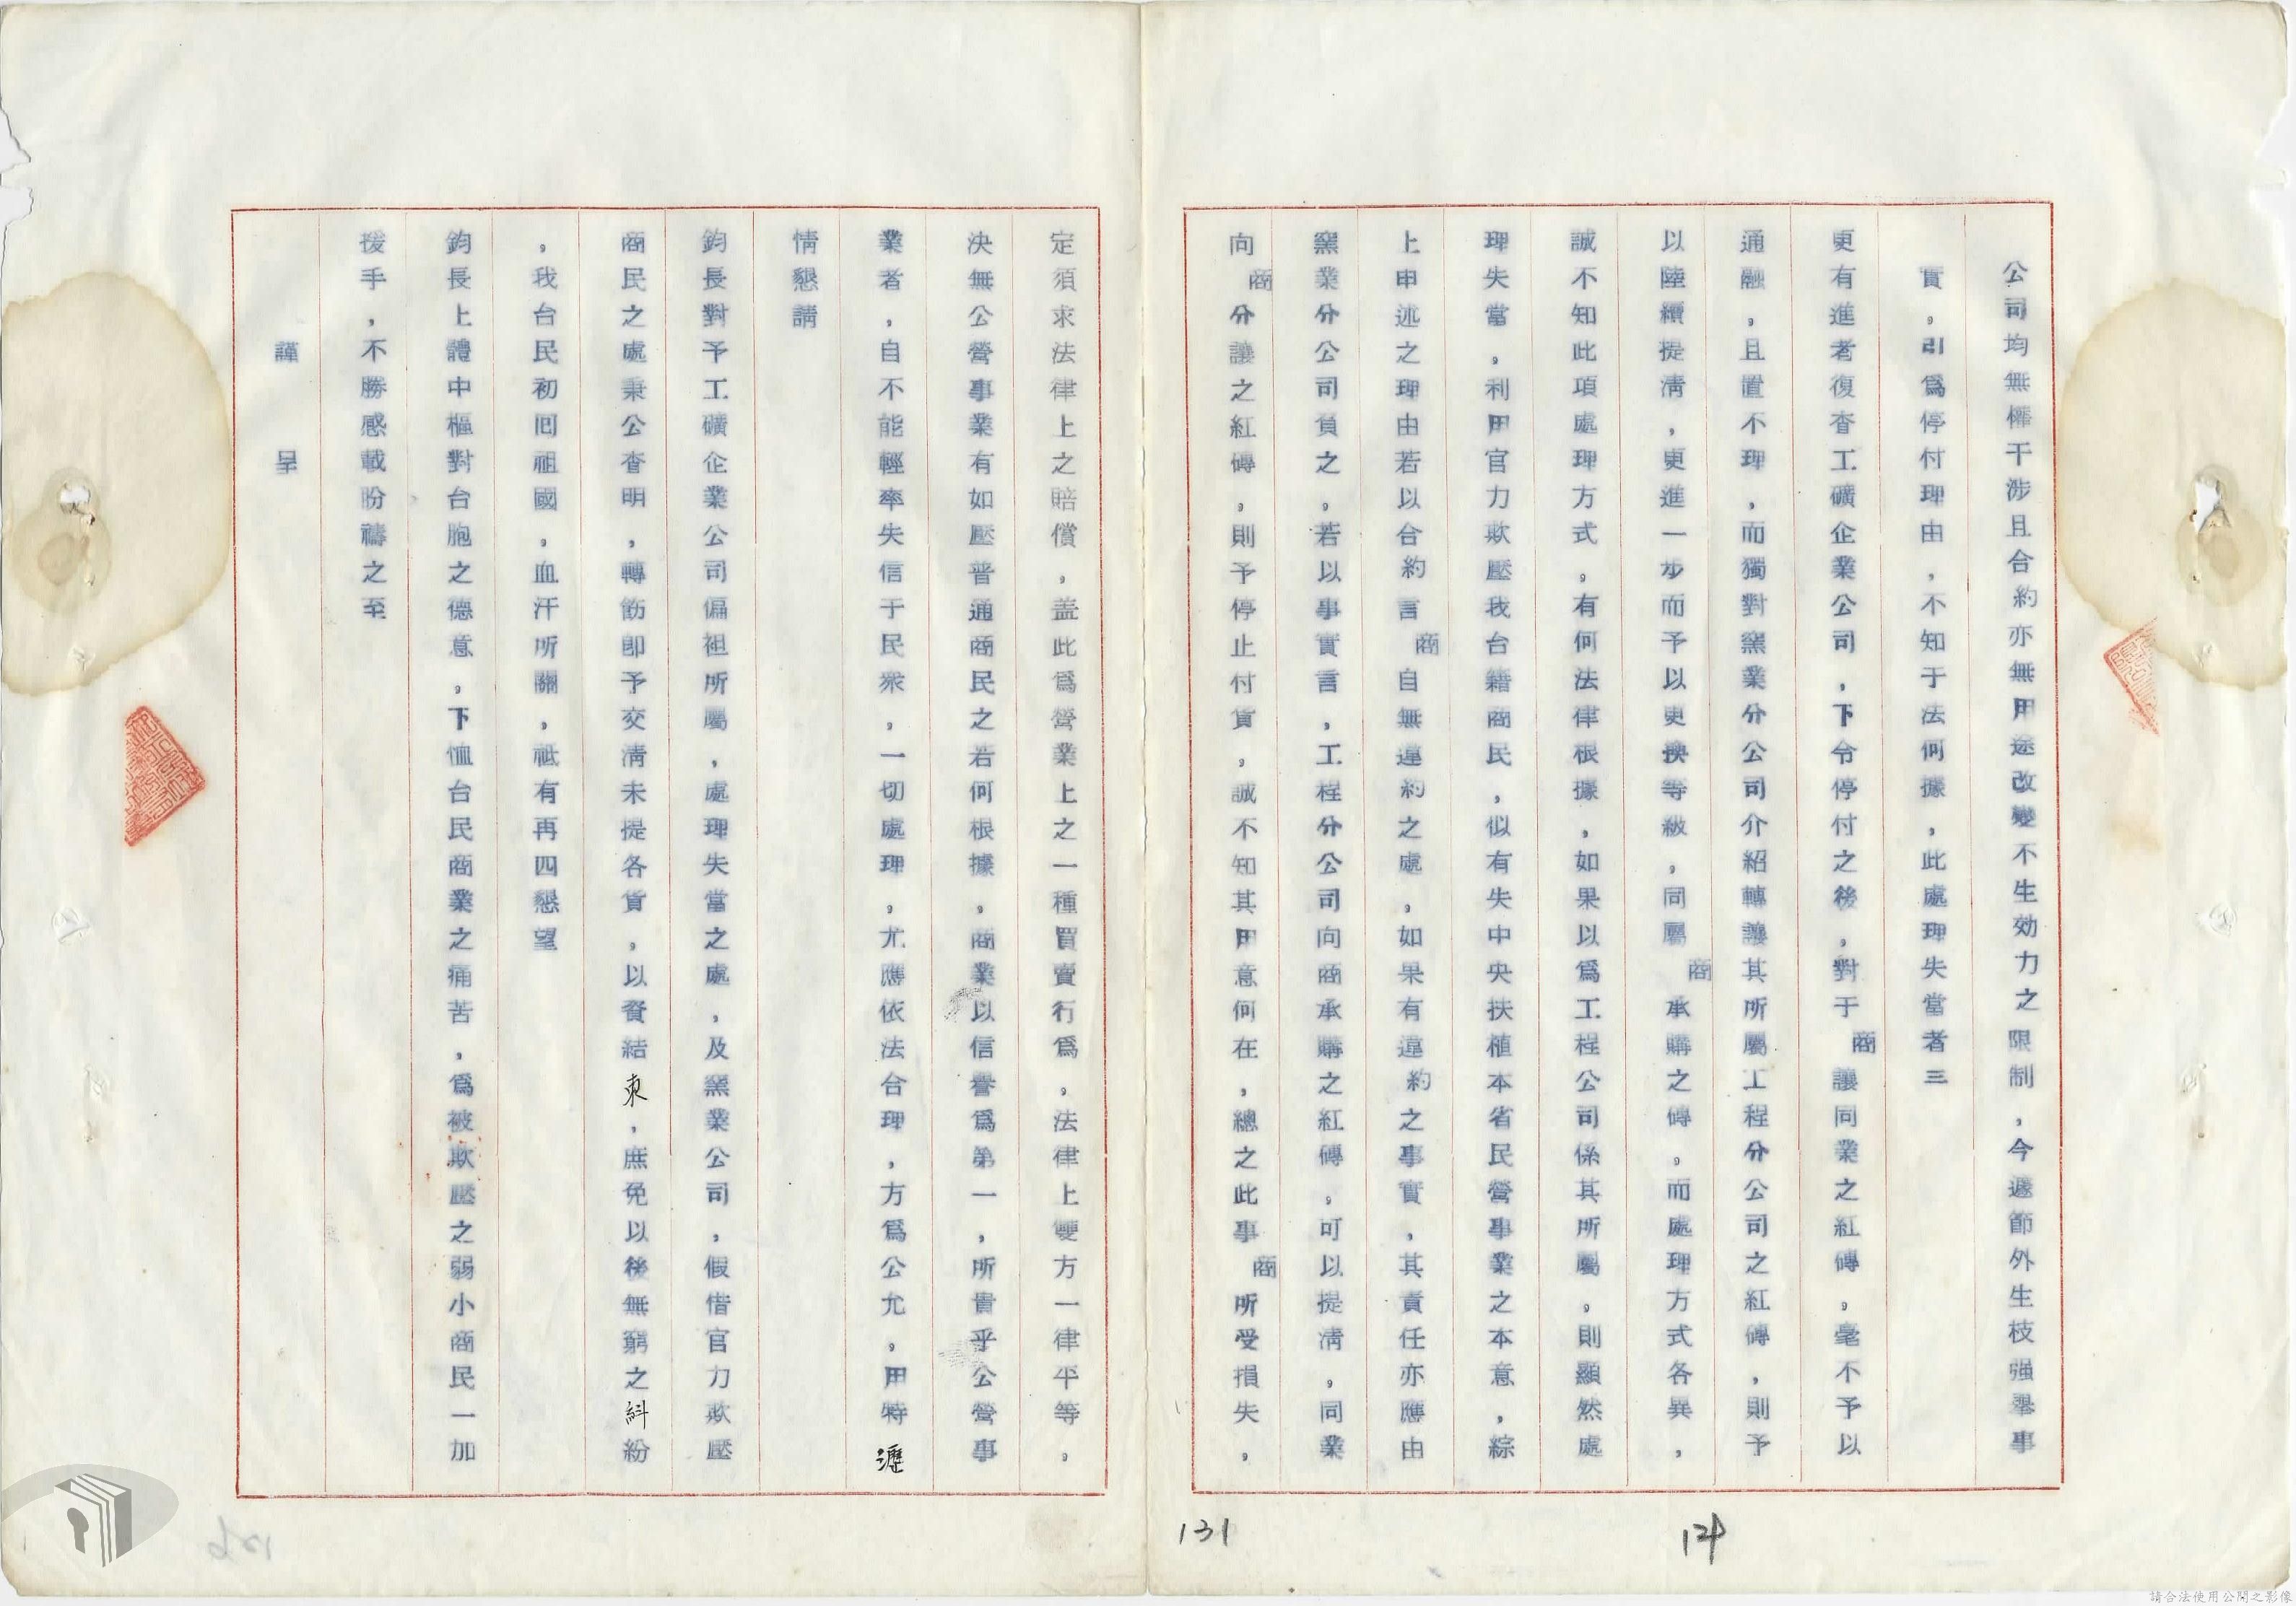 公司均無權干涉且合約亦無用途改變不生効力之限制，今遽節外生枝强舉事
實，引爲停付理由，不知于法何據，此處理失當者三
更有進者復查工礦企業公司，下令停付之後，對于商讓同業之紅磚。毫不予以
通融，且置不理，而獨對窯業分公司介紹轉讓其所屬工程分公司之紅磚，則予
以陸續提淸，更進一步而予以更換等級，同屬商承購之磚。而處理方式各異，
誠不知此項處理方式。有何法律根據，如果以爲工程公司係其所屬，則顯然處
理失當，利用官力欺壓我台籍商民，似有失中央扶植本省民營事業之本意，綜
上申述之理由若以合約言商自無違約之處。如果有違約之事實，其責任亦應由
窯業分公司負之。若以事實言，工程分公司向商承購之紅磚。可以提淸，同業
向商分讓之紅磚，則予停止付貨。誠不知其用意何在，總之此事商所受損失，
定須求法律上之賠償，盖此爲營業上之一種買賣行爲。法律上雙方一律平等。
決無公營事業有如壓普通商民之若何根據，商業以信譽爲第一，所貴乎公營事
業者，自不能輕率失信于民衆，一切處理，尤應依法合理，方爲公允。用特瀝
情懇請
鈞長對予工礦企業公司偏袒所屬，處理失當之處，及窯業公司，假借官力欺壓
商民之處秉公查明，轉飭即予交淸未提各貨，以資結束，庶免以後無窮之糾紛
，我台民初回祖國，血汗所關，祗有再四懇望
鈞長上體中樞對台胞之德意，下恤台民商業之痛苦，爲被欺壓之弱小商民一加
援手，不勝感載盼禱之至
謹呈
131
請合法使用公開之影像